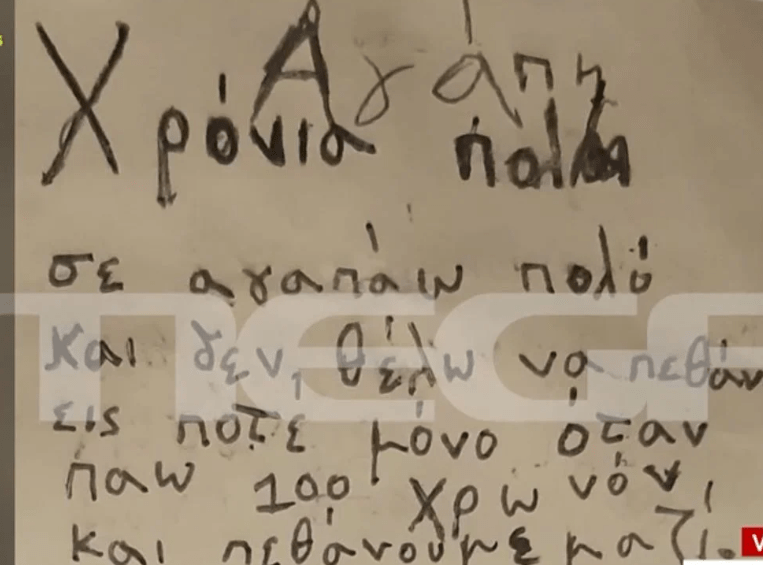 Αγάπη
Χρόνια πολλα
σε αγαπάω πολύ
και δεν, θέλω να πεθάν
εις ποτε μόνο όταν
παω 100 χρωνόν,
και πεθάνουμε μαζί.
MEGA